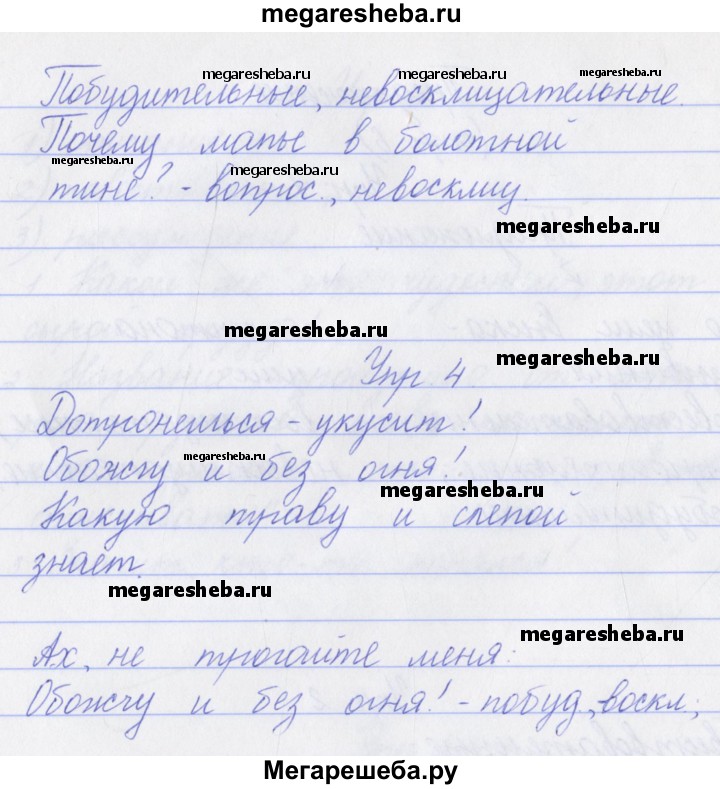 megaresheba.ru
megaresheba.ru megaresheba.ru megaresheba.ru
Побудительные, невосклицательные.
Почему мапы в болотной
megaresheba.ru megaresheba.ru
тине? - вопрос., невосклиц.
megaresheba.ru
megaresheba.ru
Упр. 4 megaresheba.ru
Дотронешься - укусит!
Обожгу и без огня!
megaresheba.ru
Какую траву и слепой
знает.
megaresheba.ru
megaresheba.ru
Ах, не трогайте меня:
Обожгу и без огня! - побуд, воскл;
Мегарешеба.ру